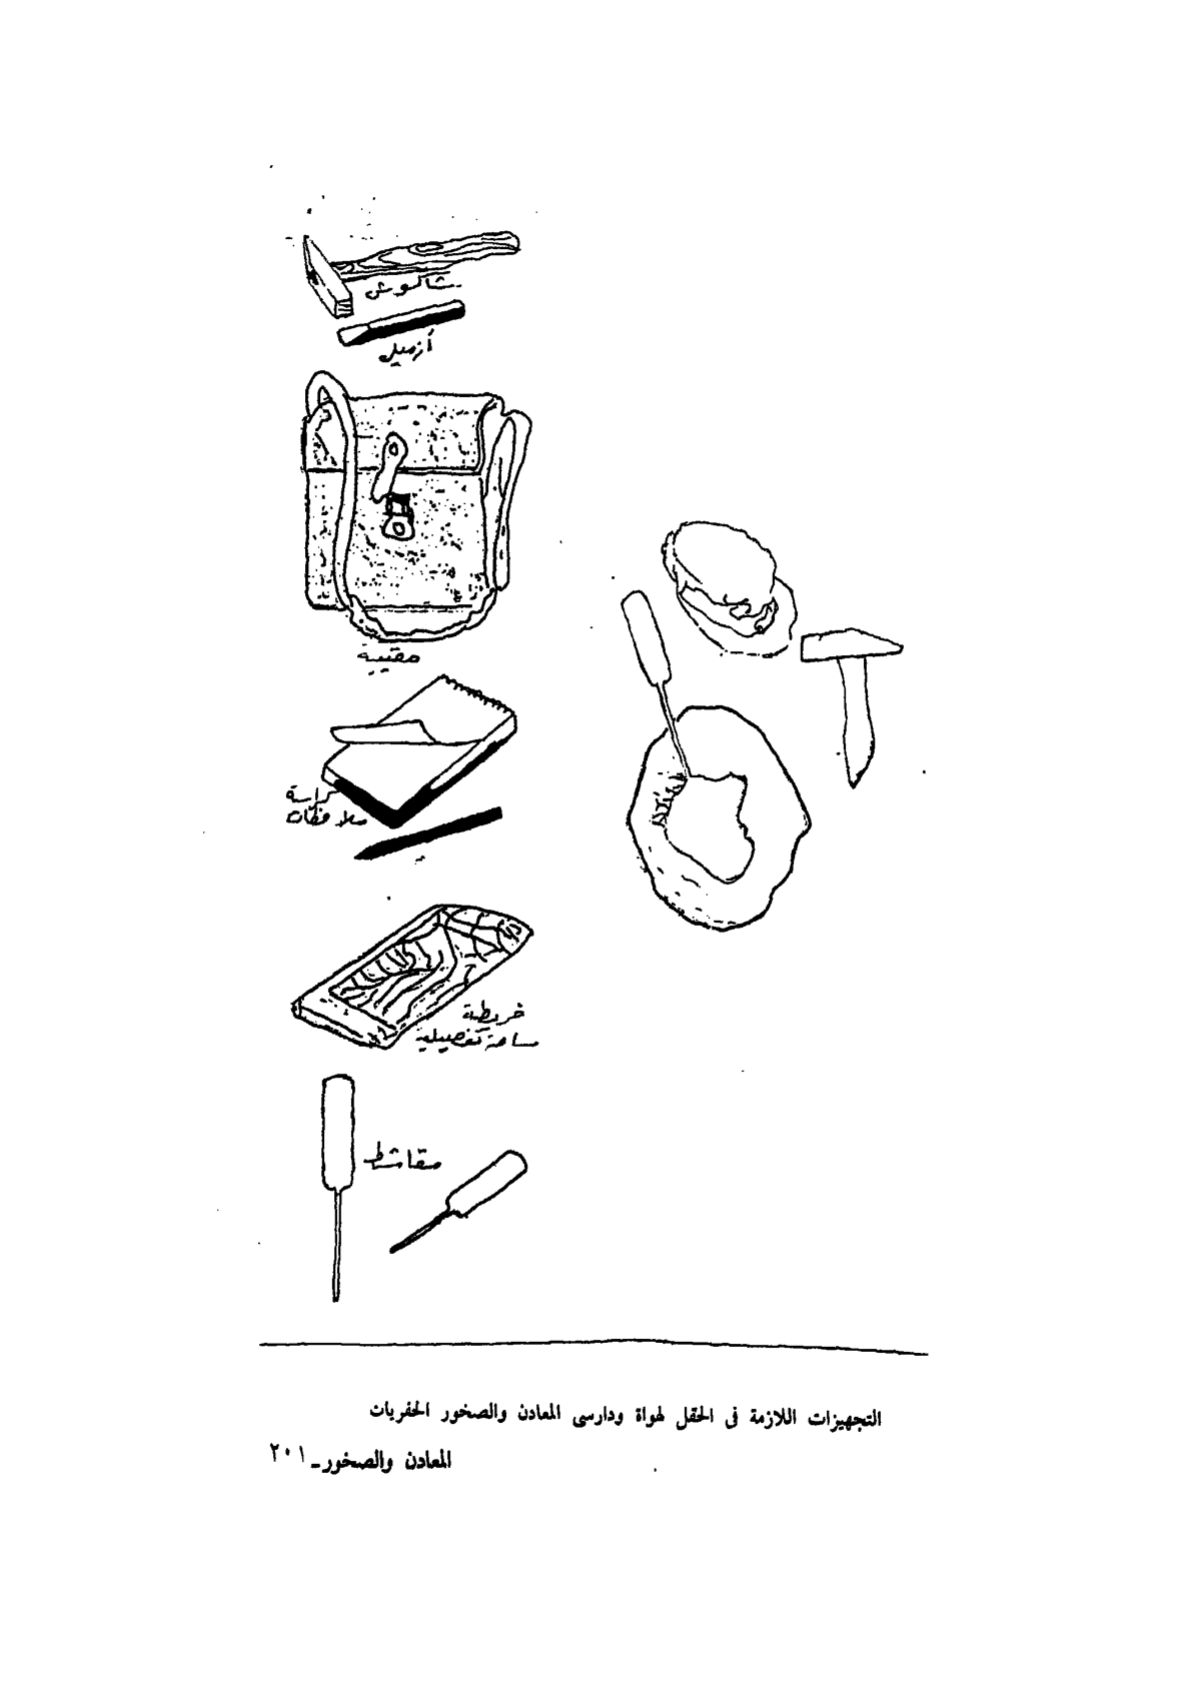 شاكوش
أزميل
حقيبة
كراسة
ملاحظات
خريطة
مساحة تفصيلية
مقاشط
التجهيزات اللازمة فى الحقل لهواة ودارسى المعادن والصخور الحفريات
المعادن والصخور ـ ٢٠١